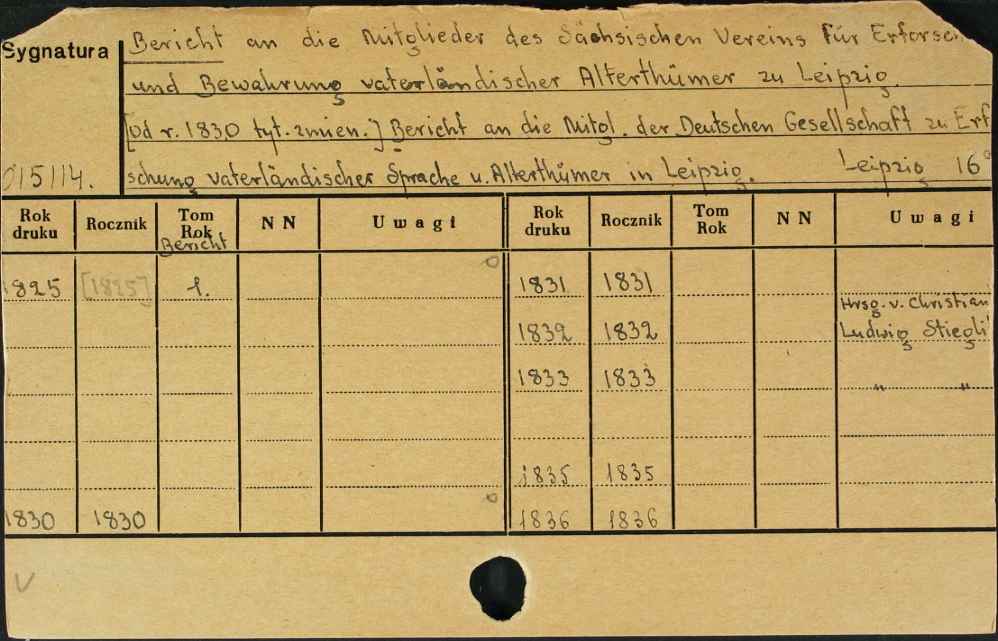 Sygnatura
Bericht an die Mitglieder des Sächsischen Vereins für Erforsch
und Bewahrung vaterländischer Alterthümer zu Leipzig.
[Od r. 1830 tyt. zmien.] Bericht an die Mitgl. der Deutschen Gesellschaft zu Erf
schung vaterländischer Sprache u. Alterthümer in Leipzig. Leipzig 16°
015114.
Rok druku Rocznik Tom Rok NN Uwagi Rok druku Rocznik Tom Rok NN Uwagi
Bericht
1825 [1825] 1. 1831 1831
Hrsg. v. Christian
1832 1832 Ludwig Stiegli
1833 1833 " "
1835 1835
1830 1830 1836 1836
V